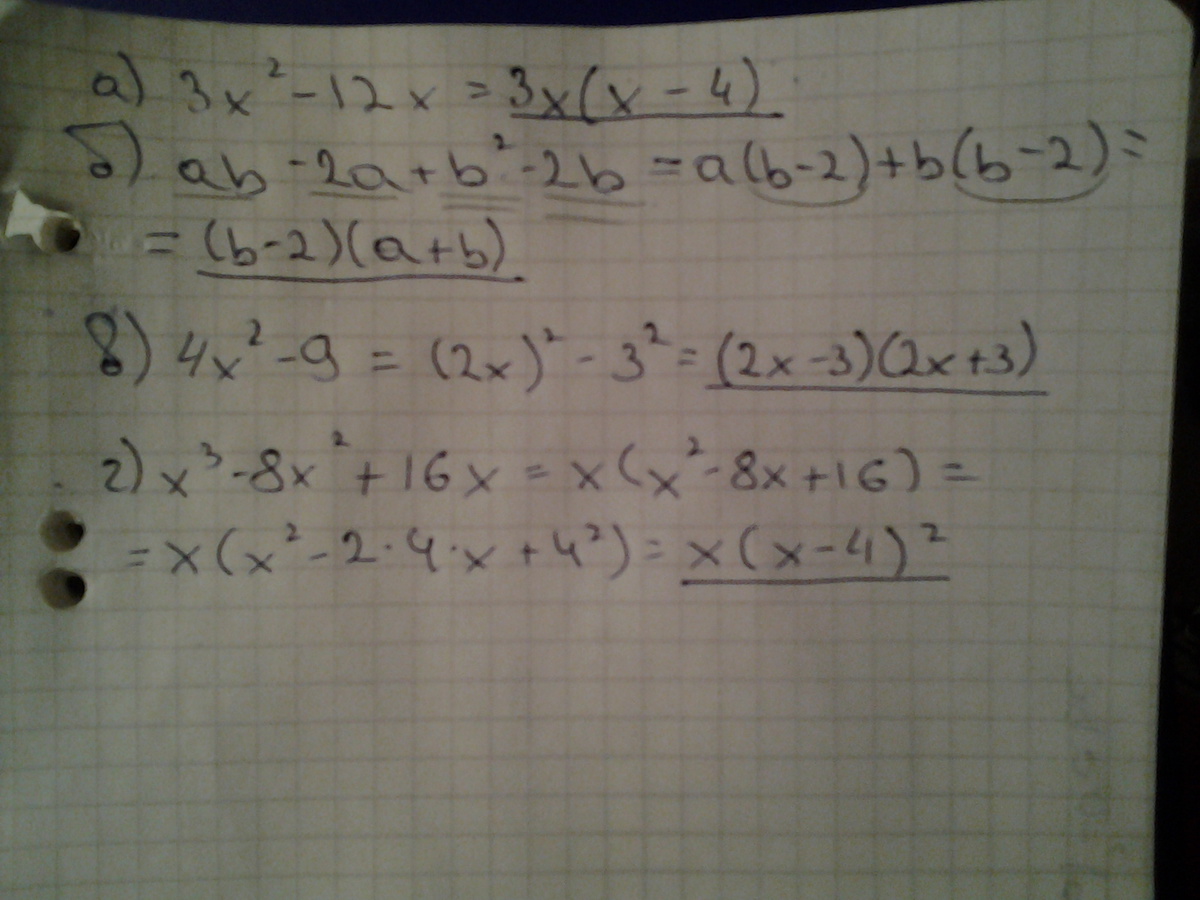 а) 3x² - 12x = 3x(x - 4)
б) ab - 2a + b² - 2b = a(b-2) + b(b-2) =
= (b-2)(a+b)
в) 4x² - 9 = (2x)² - 3² = (2x-3)(2x+3)
г) x³ - 8x² + 16x = x(x² - 8x + 16) =
= x(x² - 2·4·x + 4²) = x(x-4)²